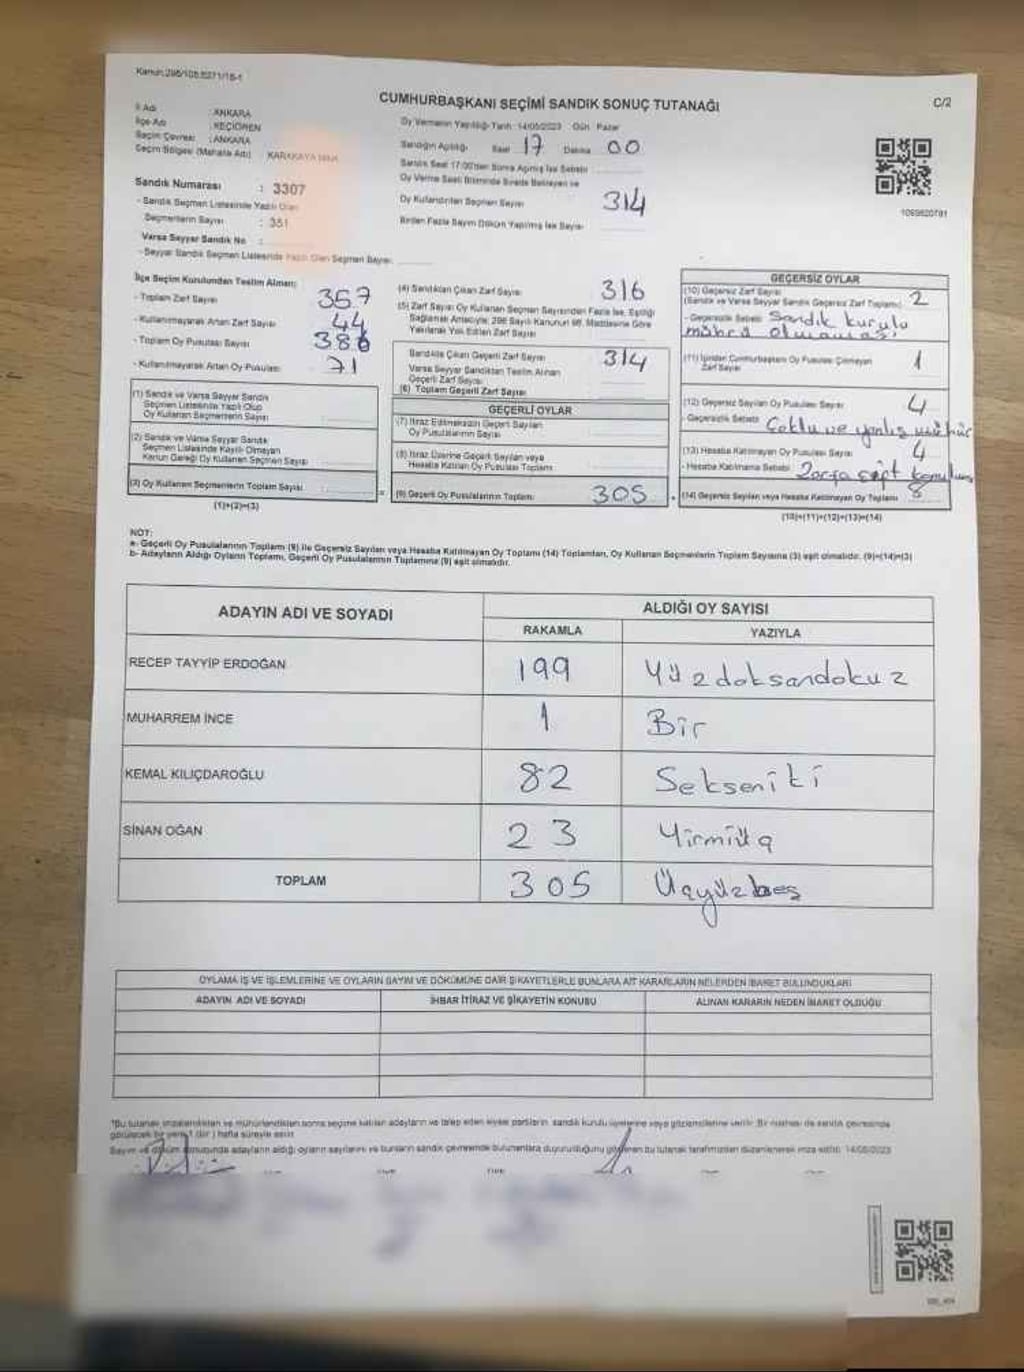 Kanun:298/105.6271/16-1
CUMHURBAŞKANI SEÇİMİ SANDIK SONUÇ TUTANAĞI
C/2
İl Adı : ANKARA
İlçe Adı : KEÇİÖREN
Seçim Çevresi : ANKARA
Seçim Bölgesi (Mahalle Adı) : KARAKAYA MAH.
Sandık Numarası : 3307
- Sandık Seçmen Listesinde Yazılı Olan
Seçmenlerin Sayısı : 351
Varsa Seyyar Sandık No :
- Seyyar Sandık Seçmen Listesinde Yazılı Olan Seçmen Sayısı:
Oy Vermenin Yapıldığı Tarih: 14/05/2023 Gün: Pazar
Sandığın Açıldığı Saat 17 Dakika 00
Sandık Saat 17:00'den Sonra Açılmış İse Sebebi
Oy Verme Saati Bitiminde Sırada Bekleyen ve
Oy Kullandırılan Seçmen Sayısı 314
Birden Fazla Sayım Döküm Yapılmış İse Sayısı
1069620791
İlçe Seçim Kurulundan Teslim Alınan;
- Toplam Zarf Sayısı 357
- Kullanılmayarak Artan Zarf Sayısı 44
- Toplam Oy Pusulası Sayısı 386
- Kullanılmayarak Artan Oy Pusulası 71
(1) Sandık ve Varsa Seyyar Sandık
Seçmen Listesinde Yazılı Olup
Oy Kullanan Seçmenlerin Sayısı
(2) Sandık ve Varsa Seyyar Sandık
Seçmen Listesinde Kayıtlı Olmayan
Kanun Gereği Oy Kullanan Seçmen Sayısı
(3) Oy Kullanan Seçmenlerin Toplam Sayısı
(1)+(2)=(3)
(4) Sandıktan Çıkan Zarf Sayısı 316
(5) Zarf Sayısı Oy Kullanan Seçmen Sayısından Fazla İse, Eşitliği
Sağlamak Amacıyla; 298 Sayılı Kanunun 98. Maddesine Göre
Yakılarak Yok Edilen Zarf Sayısı
Sandıkta Çıkan Geçerli Zarf Sayısı 314
Varsa Seyyar Sandıktan Teslim Alınan
Geçerli Zarf Sayısı
(6) Toplam Geçerli Zarf Sayısı
GEÇERLİ OYLAR
(7) İtiraz Edilmeksizin Geçerli Sayılan
Oy Pusulalarının Sayısı
(8) İtiraz Üzerine Geçerli Sayılan veya
Hesaba Katılan Oy Pusulası Toplamı
(9) Geçerli Oy Pusulalarının Toplamı 305
GEÇERSİZ OYLAR
(10) Geçersiz Zarf Sayısı
(Sandık ve Varsa Seyyar Sandık Geçersiz Zarf Toplamı) 2
- Geçersizlik Sebebi Sandık kurulu
mührü olmaması
(11) İçinden Cumhurbaşkanı Oy Pusulası Çıkmayan
Zarf Sayısı 1
(12) Geçersiz Sayılan Oy Pusulası Sayısı 4
- Geçersizlik Sebebi Çoklu ve yanlış mühür
(13) Hesaba Katılmayan Oy Pusulası Sayısı 4
- Hesaba Katılmama Sebebi
(14) Geçersiz Sayılan veya Hesaba Katılmayan Oy Toplamı 8
(10)+(11)+(12)+(13)=(14)
NOT:
a- Geçerli Oy Pusulalarının Toplamı (9) ile Geçersiz Sayılan veya Hesaba Katılmayan Oy Toplamı (14) Toplamları, Oy Kullanan Seçmenlerin Toplam Sayısına (3) eşit olmalıdır. (9)+(14)=(3)
b- Adayların Aldığı Oyların Toplamı, Geçerli Oy Pusulalarının Toplamına (9) eşit olmalıdır.
ADAYIN ADI VE SOYADI
ALDIĞI OY SAYISI
RAKAMLA YAZIYLA
RECEP TAYYİP ERDOĞAN 199 Yüzdoksandokuz
MUHARREM İNCE 1 Bir
KEMAL KILIÇDAROĞLU 82 Sekseniki
SİNAN OĞAN 23 Yirmiüç
TOPLAM 305 Üçyüzbeş
OYLAMA İŞ VE İŞLEMLERİNE VE OYLARIN SAYIM VE DÖKÜMÜNE DAİR ŞİKAYETLERLE BUNLARA AİT KARARLARIN NELERDEN İBARET BULUNDUKLARI
ADAYIN ADI VE SOYADI İHBAR İTİRAZ VE ŞİKAYETİN KONUSU ALINAN KARARIN NEDEN İBARET OLDUĞU
*Bu tutanak imzalandıktan ve mühürlendikten sonra seçime katılan adayların ve talep eden siyasi partilerin, sandık kurulu üyelerine veya gözlemcilerine verilir. Bir nüshası da sandık çevresinde
görülecek bir yere 1 (bir) hafta süreyle asılır.
Sayım ve döküm sonucunda adayların aldığı oyların sayılarını ve bunların sandık çevresinde bulunanlara duyurulduğunu gösteren bu tutanak tarafımızdan düzenlenerek imza edildi. 14/05/2023